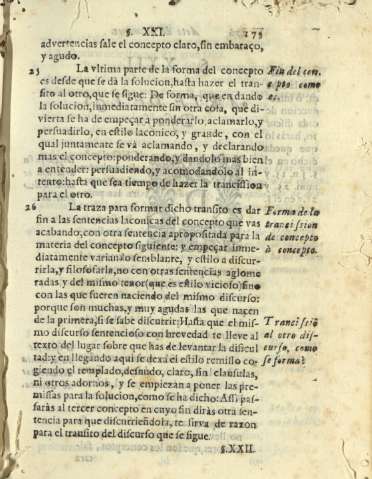 §. XXI. 175
advertencias sale el concepto claro, sin embaraço,
y agudo.
25 La vltima parte de la forma del concepto
es desde que se dà la solucion, hasta hazer el tran-
sito al otro, que se sigue. De forma, que en dando
la solucion, inmediatamente sin otra cosa, que di-
vierta se ha de empeçar à ponderarlo, aclamarlo, y
persuadirlo, en estilo laconico, y grande, con el
qual juntamente se và aclamando, y declarando
mas el concepto: ponderando, y dandolo mas bien
a entender: persuadiendo, y acomodandolo al in-
tento: hasta que sea tiempo de hazer la trancission
para el otro.
Fin del con-
cepto como
es.
26 La traza para formar dicho transito es dar
fin a las sentencias laconicas del concepto que vas
acabando, con otra sentencia apropositada para la
materia del concepto siguiente: y empeçar inme-
diatamente variando semblante, y estilo a discur-
rirla, y filosofarla, no con otras sentencias aglome
radas y del mismo tenor (que es estilo vicioso) sino
con las que fueren naciendo del mismo discurso:
porque son muchas, y muy agudas las que nacen
de la primera, si se sabe discurrir: Hasta que el mis-
mo discurso sentencioso con brevedad te lleve al
texto del lugar sobre que has de levantar la dificul
tad: y en llegando aqui se dexa el estilo remisso co-
giendo el templado, desnudo, claro, sin clausulas,
ni otros adornos, y se empiezan a poner las pre-
missas para la solucion, como se ha dicho: Assi pas-
saràs al tercer concepto en cuyo sin diràs otra sen-
tencia para que discurriendola, te sirva de razon
para el transito del discurso que se sigue.
Forma de la
trancission
de concepto
à concepto.
Trancissiõ
al otro dis-
curso, como
se forma?
§. XXII.